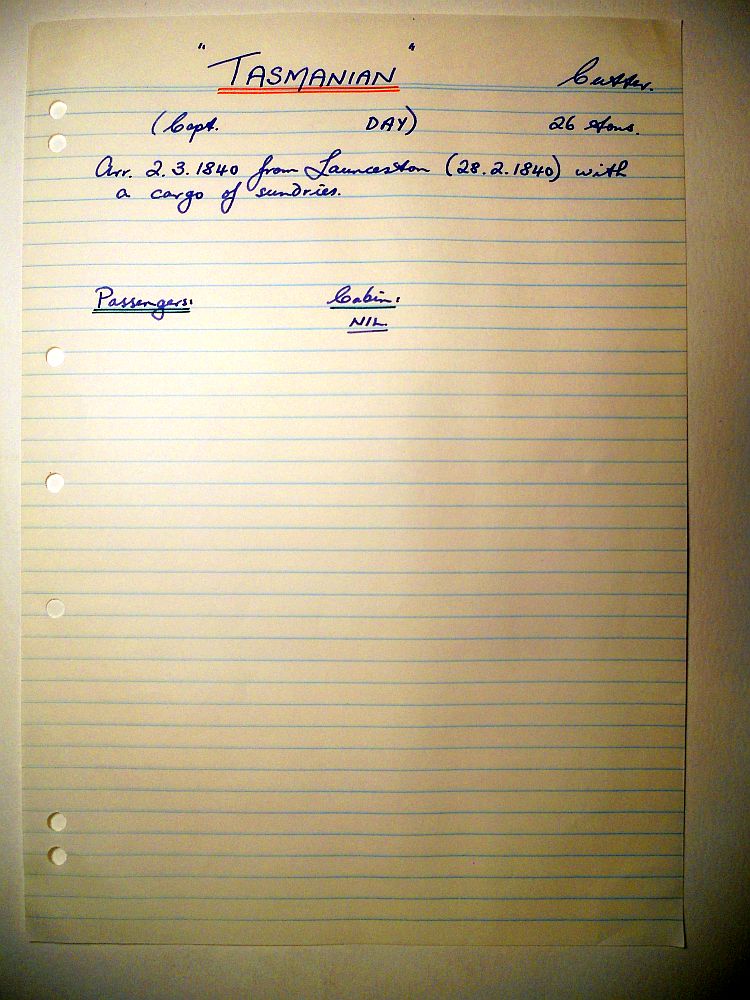 "TASMANIAN" Cutter.
(Capt. DAY) 26 tons.
Arr. 2.3.1840 from Launceston (28.2.1840) with
a cargo of sundries.
Passengers: Cabin:
NIL